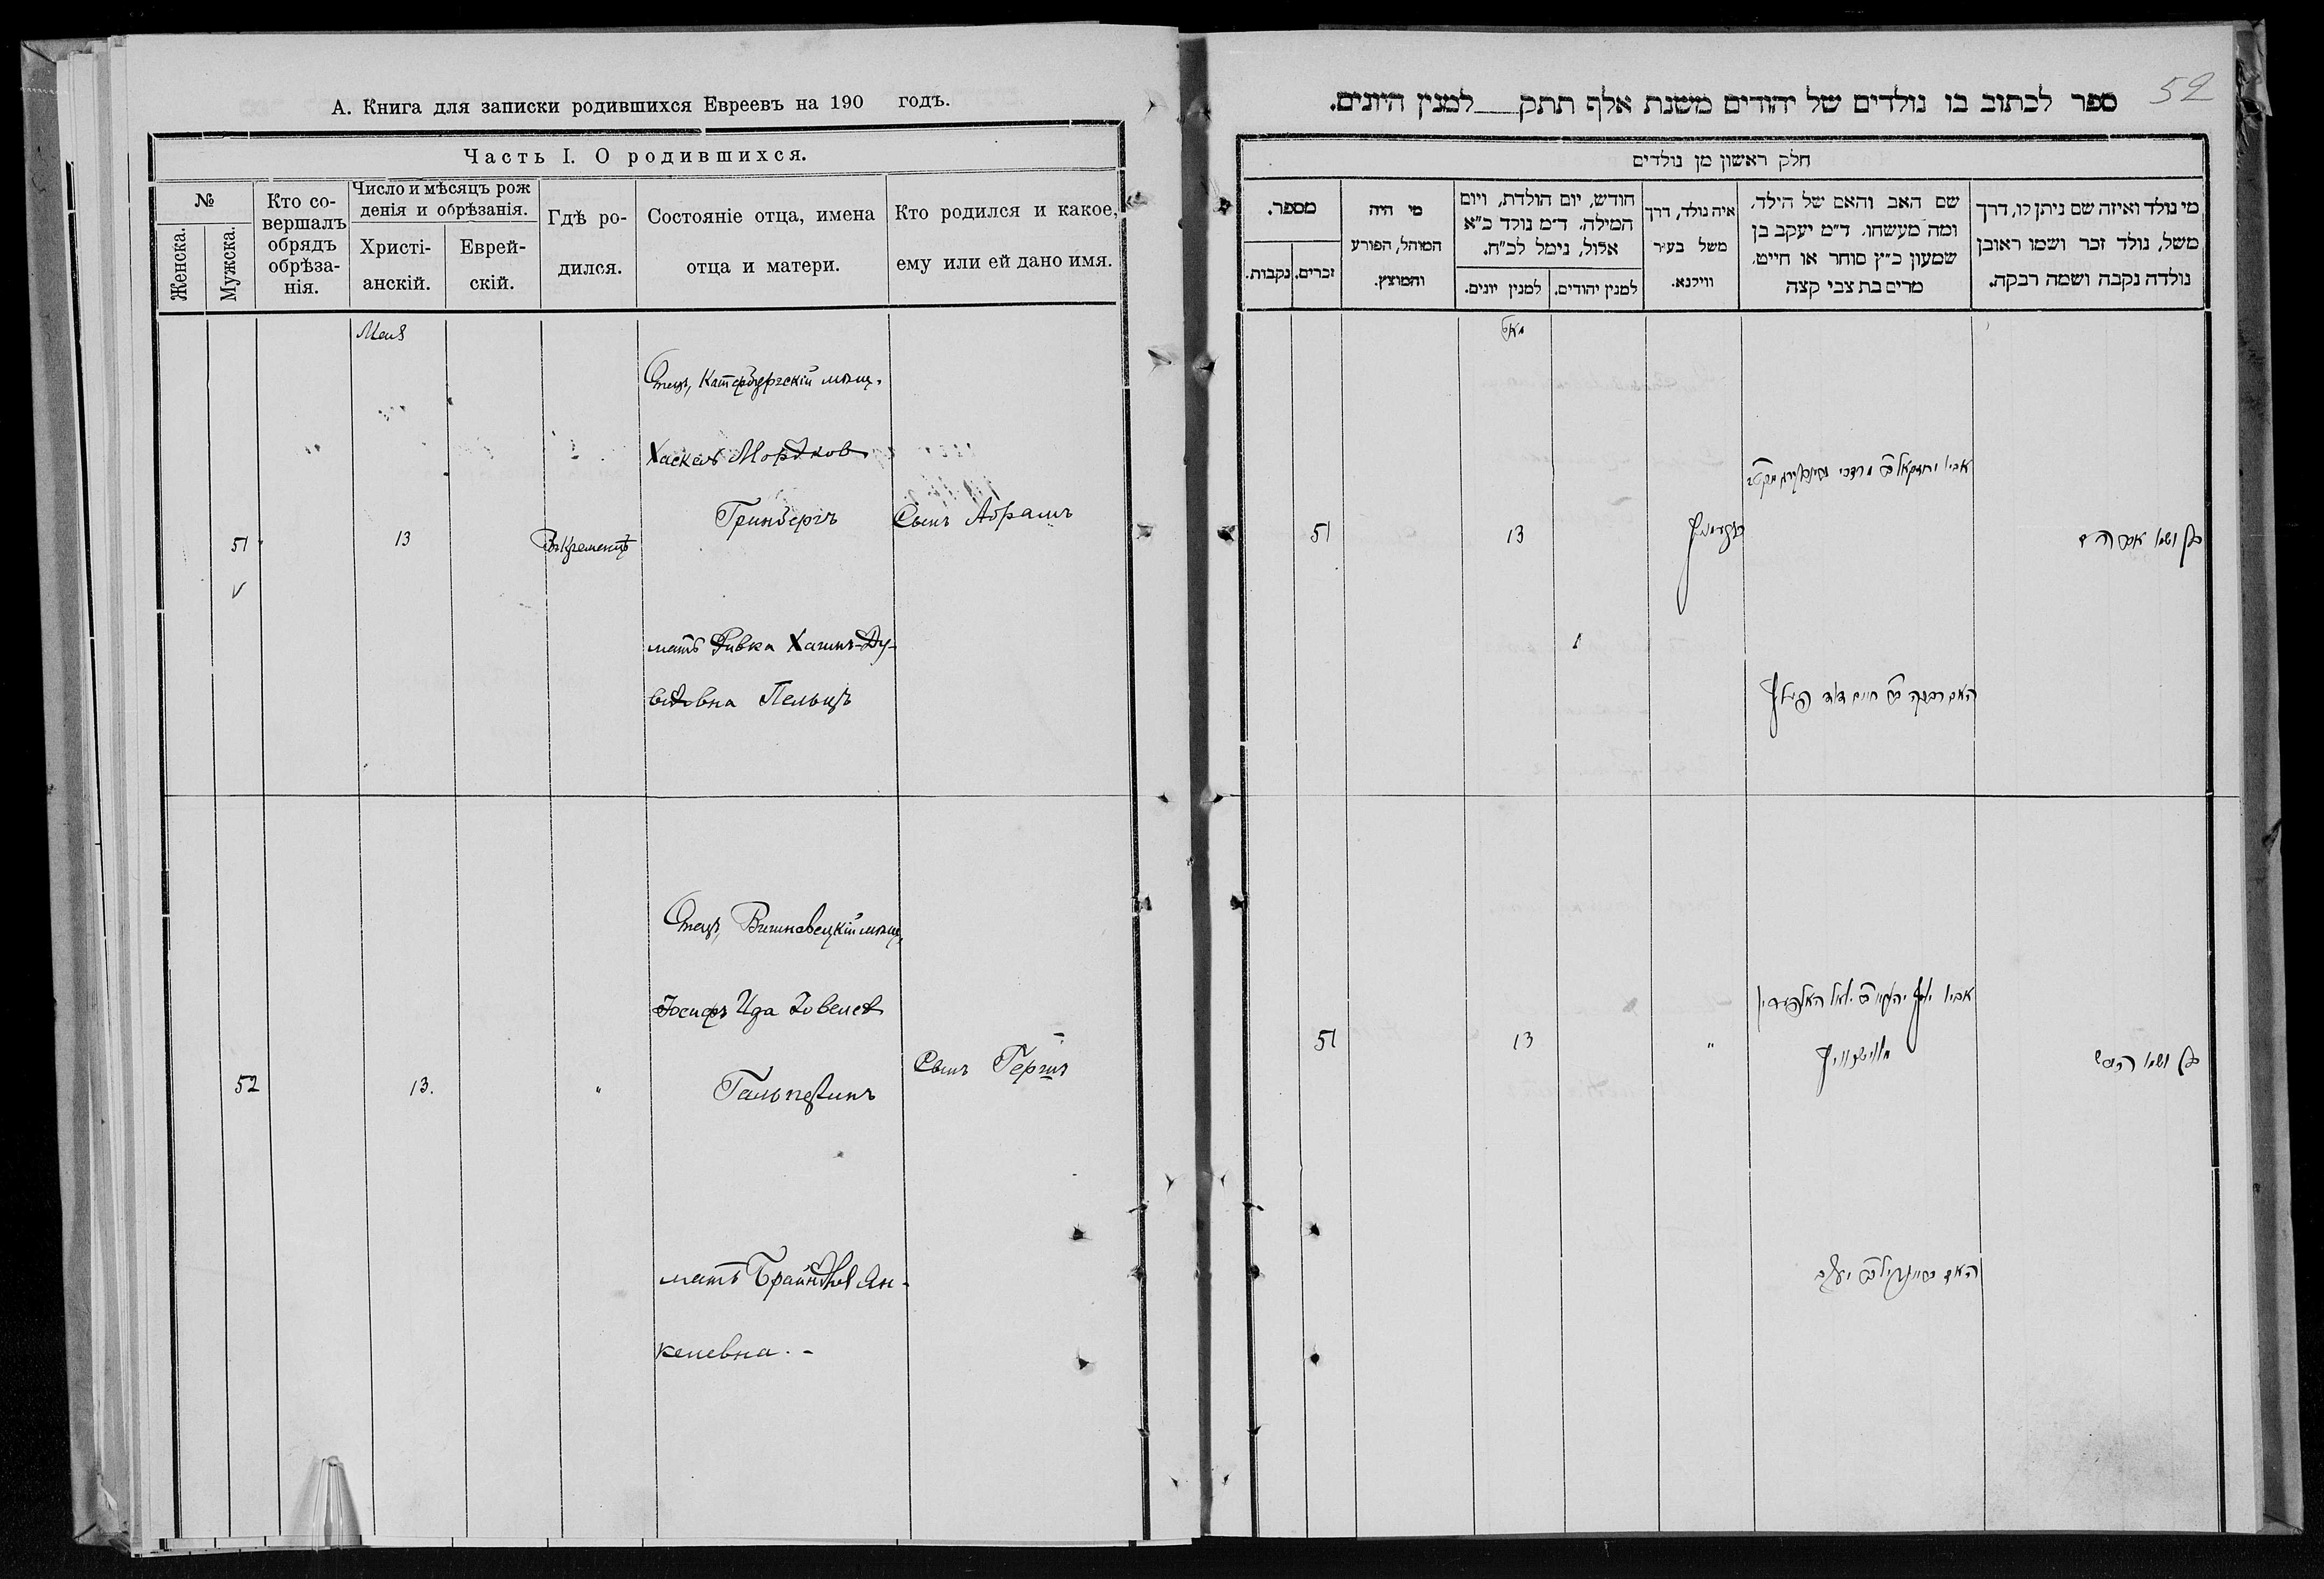 А. Книга для записки родившихся Евреевъ на 190 годъ.
Часть I. О родившихся.
№
Женска.
Мужска.
Кто со-
вершалъ
обрядъ
обрѣза-
нія.
Число и мѣсяцъ рож
денія и обрѣзанія.
Христі-
анскій.
Еврей-
скій.
Гдѣ ро-
дился.
Состояніе отца, имена
отца и матери.
Кто родился и какое,
ему или ей дано имя.
Мая
51
13
Отецъ, мѣщ.
Хаскель Мордков
Гринбергъ
мать Ривка Хаимъ-Ду-
видовна Пельцъ
Сынъ Абрамъ
52
13.
"
Отецъ, Вишневецкій мѣщ,
Іосифъ
Гальперинъ
мать Ян-
келевна. -
Сынъ Гершъ
52
ספר לכתוב בו נולדים של יהודים משנת אלף תתק למנין היונים.
חלק ראשון מן נולדים
מי נולד ואיזה שם ניתן לו, דרך
משל, נולד זכר ושמו ראובן
נולדה נקבה ושמה רבקה.
שם האב והאם של הילד,
ומה מעשהו, ד״מ יעקב בן
שמעון כ״ץ סוחר או חייט,
מרים בת צבי קצה
איה נולד, דרך
משל בעיר
ווילנא.
חודש, יום הולדת, ויום
המילה, ד״מ נולד כ״א
אלול, נימל לכ״ח.
למנין יהודים.
למנין יונים.
מי היה
המוהל, הפורע
והמוצץ.
מספר.
זכרים.
נקבות.
מאי
בן ושמו אברהם
אביו יחזקאל ב מרדכי
האם רבקה בת חיים דוד
13
51
בן ושמו הירש
אביו יוסף
"
13
51
האם